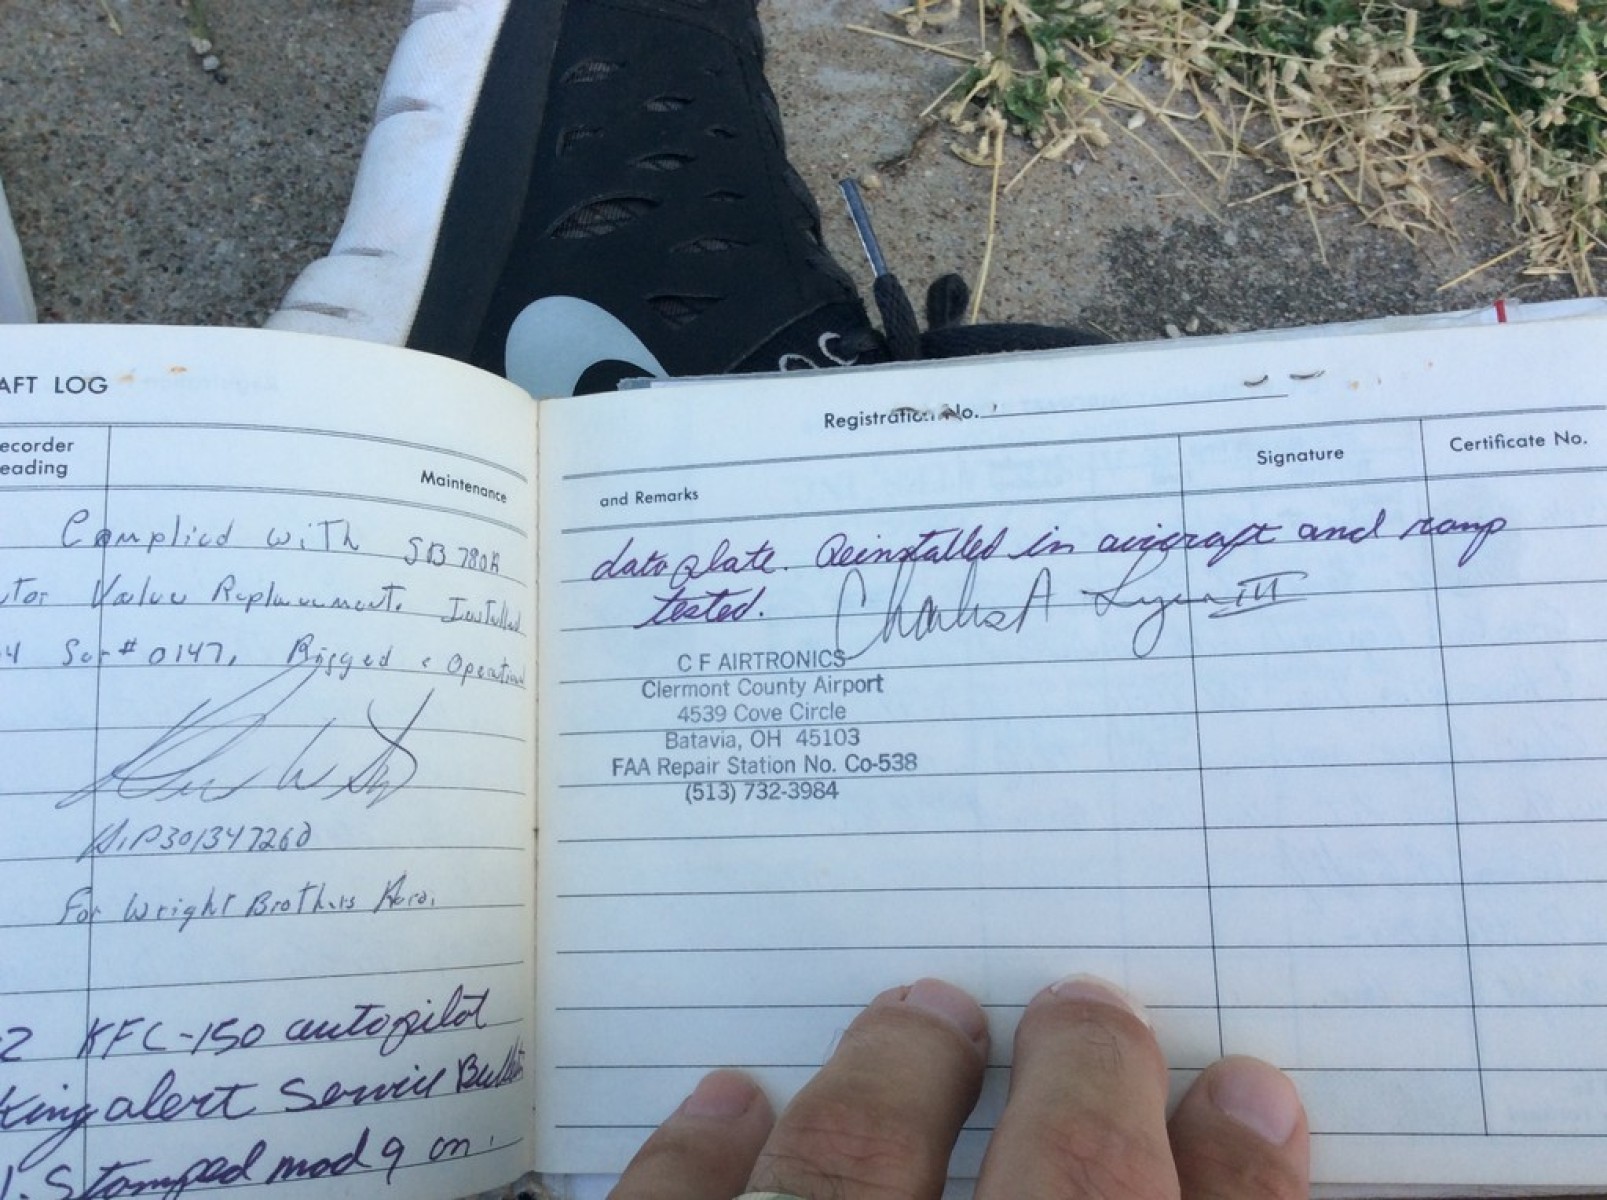 AFT LOG
ecorder
eading
Maintenance
Complied with SB 780A
tor Valve Replacement. Installed
4 Ser# 0147, Rigged & Operational
A&P301347260
For Wright Brothers Aero.
2 KFC-150 autopilot
King alert Service Bulletin
1. Stamped mod 9 on
Registration No.
and Remarks
Signature
Certificate No.
data plate. Reinstalled in aircraft and ramp
tested. Charles A III
C F AIRTRONICS
Clermont County Airport
4539 Cove Circle
Batavia, OH 45103
FAA Repair Station No. Co-538
(513) 732-3984